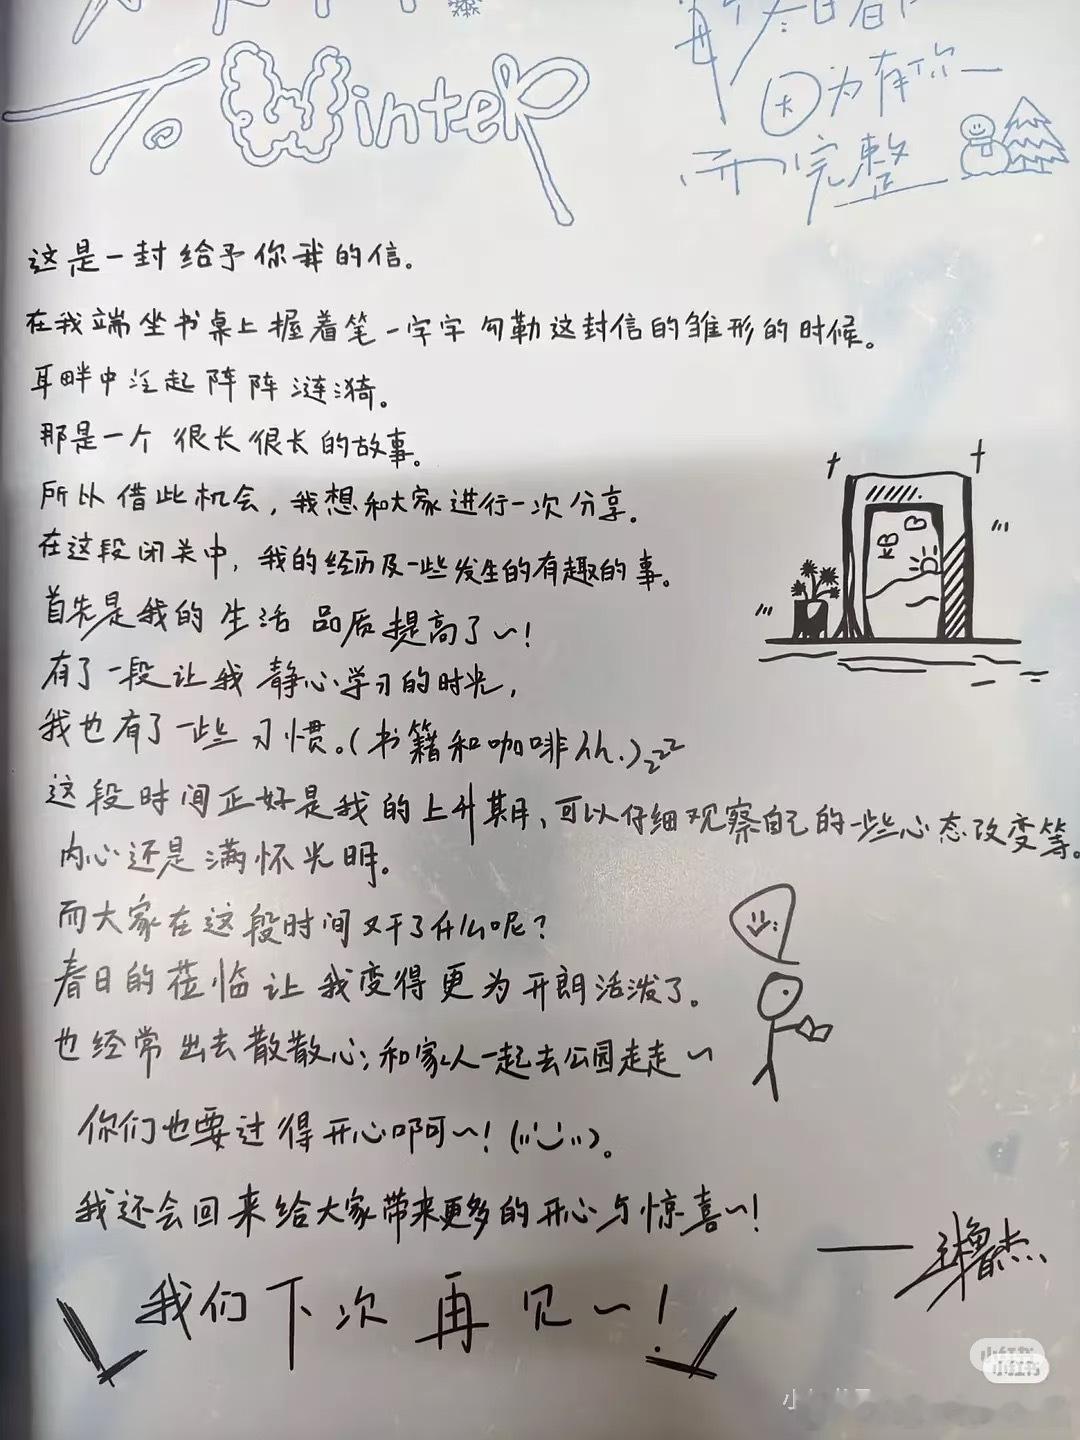 To Winter
因为有你
而完整
这是一封给予你我的信。
在我端坐书桌上握着笔一字字勾勒这封信的雏形的时候。
耳畔中泛起阵阵涟漪。
那是一个很长很长的故事。
所以借此机会,我想和大家进行一次分享。
在这段闭关中,我的经历及一些发生的有趣的事。
首先是我的生活品质提高了~!
有了一段让我静心学习的时光,
我也有了一些习惯。(书籍和咖啡hh.)zzz
这段时间正好是我的上升期、可以仔细观察自己的一些心态改变等。
内心还是满怀光明。
而大家在这段时间又干了什么呢?
春日的莅临让我变得更为开朗活泼了。
也经常出去散散心;和家人一起去公园走走~
你们也要过得开心啊~!
我还会回来给大家带来更多的开心与惊喜~!
我们下次再见~!
小红书
小红书